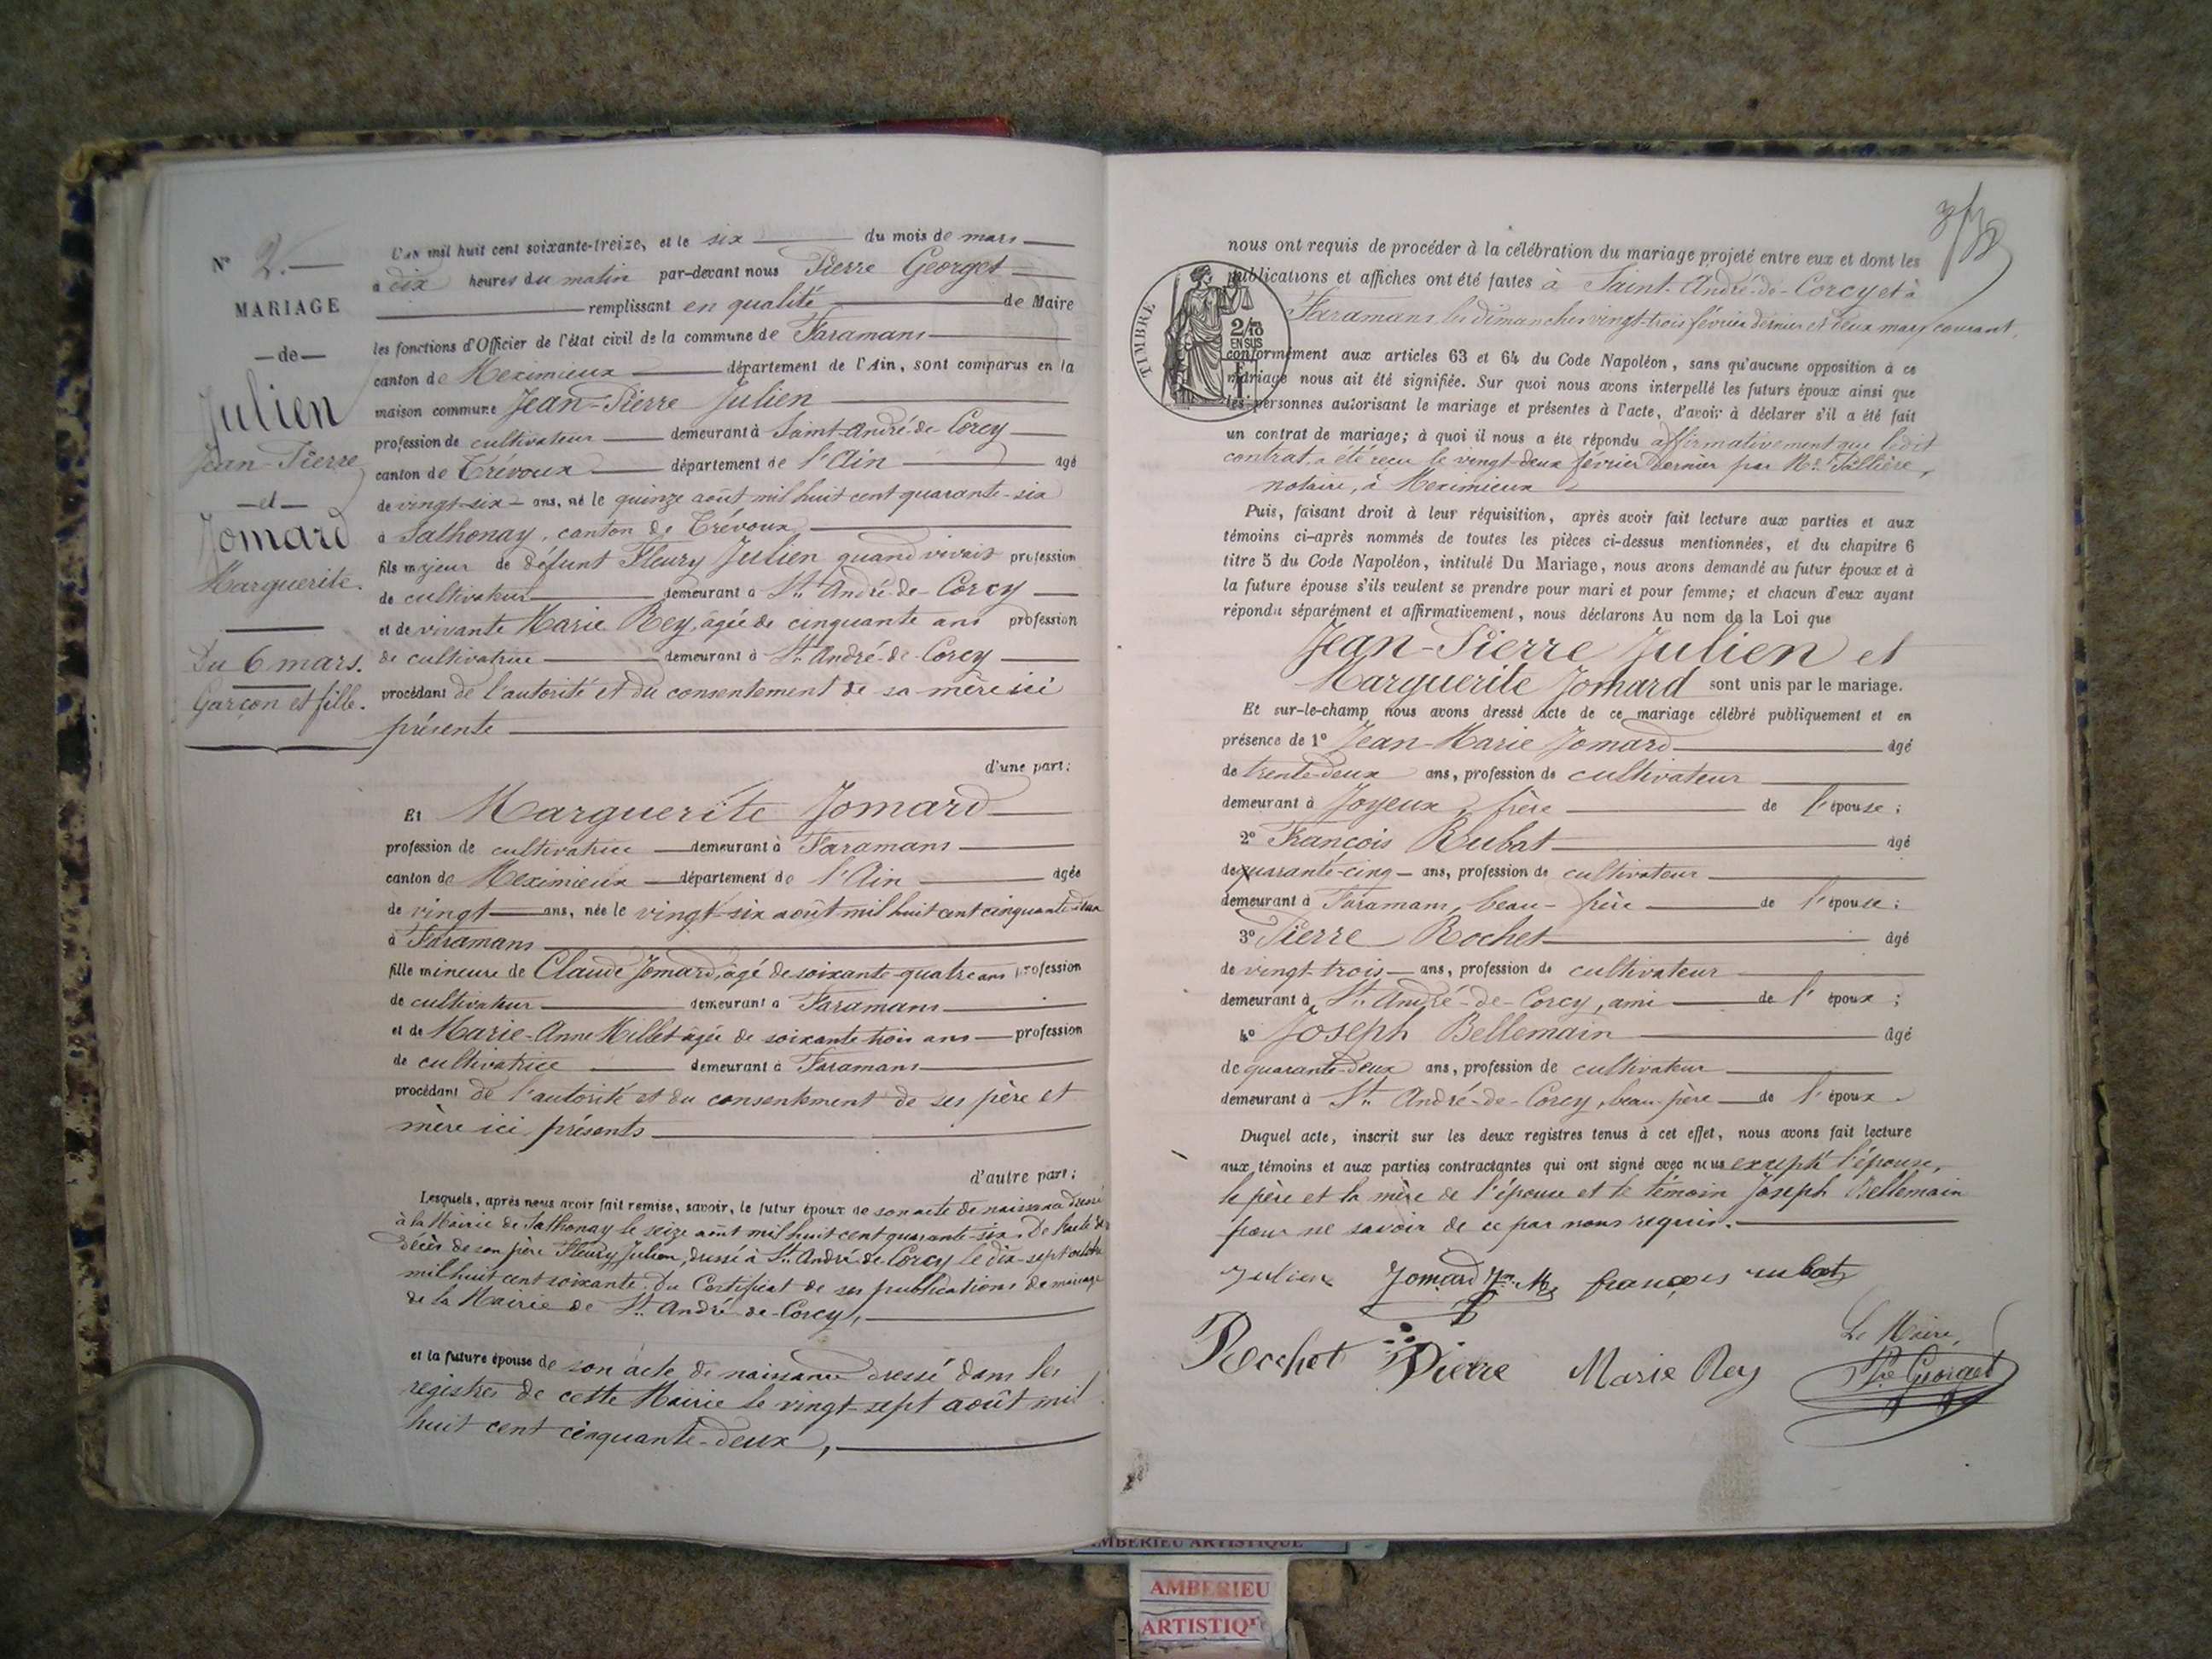 N° 2.
MARIAGE
de
Julien
Jean-Pierre
et
Jomard
Marguerite.
Du 6 mars.
Garçon et fille.
L'an mil huit cent soixante-treize, et le six du mois de mars
à dix heures du matin par-devant nous Pierre Georget
remplissant en qualité de Maire
les fonctions d'Officier de l'état civil de la commune de Faramans
canton de Meximieux département de l'Ain, sont comparus en la
maison commune Jean-Pierre Julien
profession de cultivateur demeurant à Saint-André-de-Corcy
canton de Trévoux département de l'Ain agé
de vingt-six ans, né le quinze août mil huit cent quarante-six
à Sathonay, canton de Trévoux
fils majeur de défunt Fleury Julien quand vivait profession
de cultivateur demeurant à St. André-de-Corcy
et de vivante Marie Rey, âgée de cinquante ans profession
de cultivatrice demeurant à St. André-de-Corcy
procédant de l'autorité et du consentement de sa mère ici
présente
d'une part;
Et Marguerite Jomard
profession de cultivatrice demeurant à Faramans
canton de Meximieux département de l'Ain agée
de vingt ans, née le vingt-six août mil huit cent cinquante-deux
à Faramans
fille mineure de Claude Jomard, âgé de soixante-quatre ans profession
de cultivateur demeurant à Faramans
et de Marie-Anne Millet âgée de soixante trois ans profession
de cultivatrice demeurant à Faramans
procédant de l'autorité et du consentement de ses père et
mère ici présents
d'autre part;
Lesquels, après nous avoir fait remise, savoir, le futur époux de son acte de naissance dressé
à la Mairie de Sathonay le seize août mil huit cent quarante-six. De l'acte de
décès de son père Fleury Julien, dressé à St. André de Corcy le dix-sept octobre
mil huit cent soixante. Du Certificat de ses publications de mariage
de la Mairie de St. André-de-Corcy,
et la future épouse de son acte de naissance dressé dans les
registres de cette Mairie le vingt-sept août mil
huit cent cinquante-deux,
nous ont requis de procéder à la célébration du mariage projeté entre eux et dont les
publications et affiches ont été faites à Saint-André-de-Corcy et à
Faramans, les dimanches vingt-trois février dernier et deux mars courant,
TIMBRE
2/10
EN SUS
conformément aux articles 63 et 64 du Code Napoléon, sans qu'aucune opposition à ce
mariage nous ait été signifiée. Sur quoi nous avons interpellé les futurs époux ainsi que
les personnes autorisant le mariage et présentes à l'acte, d'avoir à déclarer s'il a été fait
un contrat de mariage; à quoi il nous a été répondu affirmativement que ledit
contrat a été reçu le vingt-deux février dernier par Me.
notaire, à Meximieux
Puis, faisant droit à leur réquisition, après avoir fait lecture aux parties et aux
témoins ci-après nommés de toutes les pièces ci-dessus mentionnées, et du chapitre 6
titre 5 du Code Napoléon, intitulé Du Mariage, nous avons demandé au futur époux et à
la future épouse s'ils veulent se prendre pour mari et pour femme; et chacun d'eux ayant
répondu séparément et affirmativement, nous déclarons Au nom de la Loi que
Jean-Pierre Julien et
Marguerite Jomard sont unis par le mariage.
Et sur-le-champ nous avons dressé acte de ce mariage célébré publiquement et en
présence de 1° Jean-Marie Jomard agé
de trente-deux ans, profession de cultivateur
demeurant à Joyeux, frère de l'épouse;
2° François Rubat agé
de quarante-cinq ans, profession de cultivateur
demeurant à Faramans, beau-frère de l'épouse;
3° Pierre Rochet agé
de vingt-trois ans, profession de cultivateur
demeurant à St. André-de-Corcy, ami de l'époux;
4° Joseph Bellemain âgé
de quarante-deux ans, profession de cultivateur
demeurant à St. André-de-Corcy, beau-père de l'époux.
Duquel acte, inscrit sur les deux registres tenus à cet effet, nous avons fait lecture
aux témoins et aux parties contractantes qui ont signé avec nous excepté l'épouse,
le père et la mère de l'épouse et le témoin Joseph Bellemain
pour ne savoir de ce par nous requis.
Julien Jomard Jn. M. françois rubat
Rochet Pierre Marie Rey
Le Maire,
Pre Georget
AMBERIEU ARTISTIQUE
AMBERIEU
ARTISTIQU